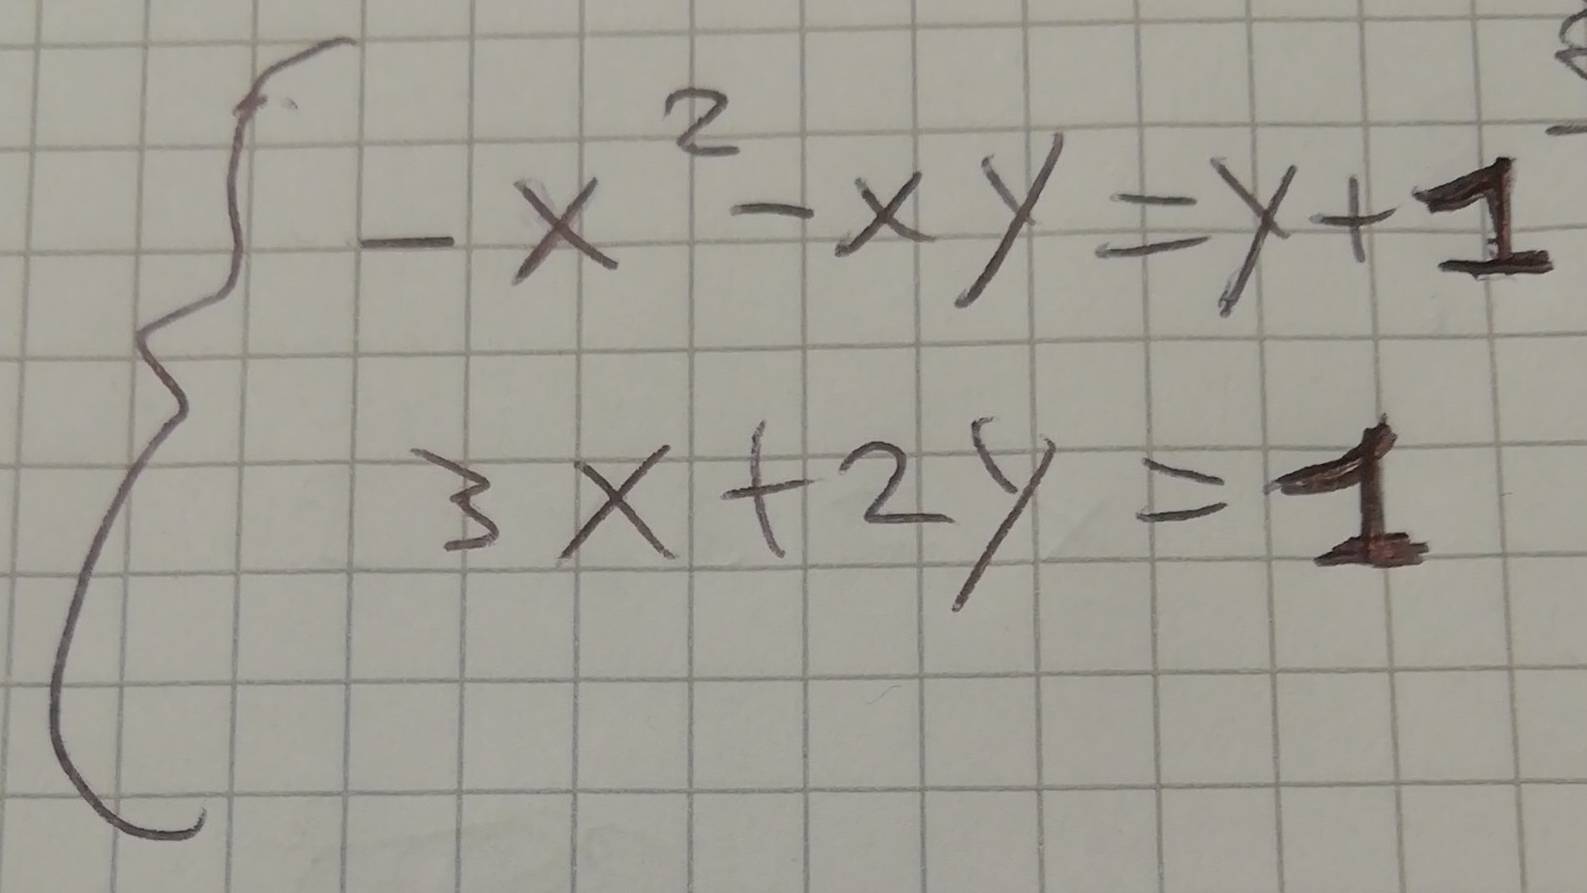 -x²-xy=y+1
3x+2y=1